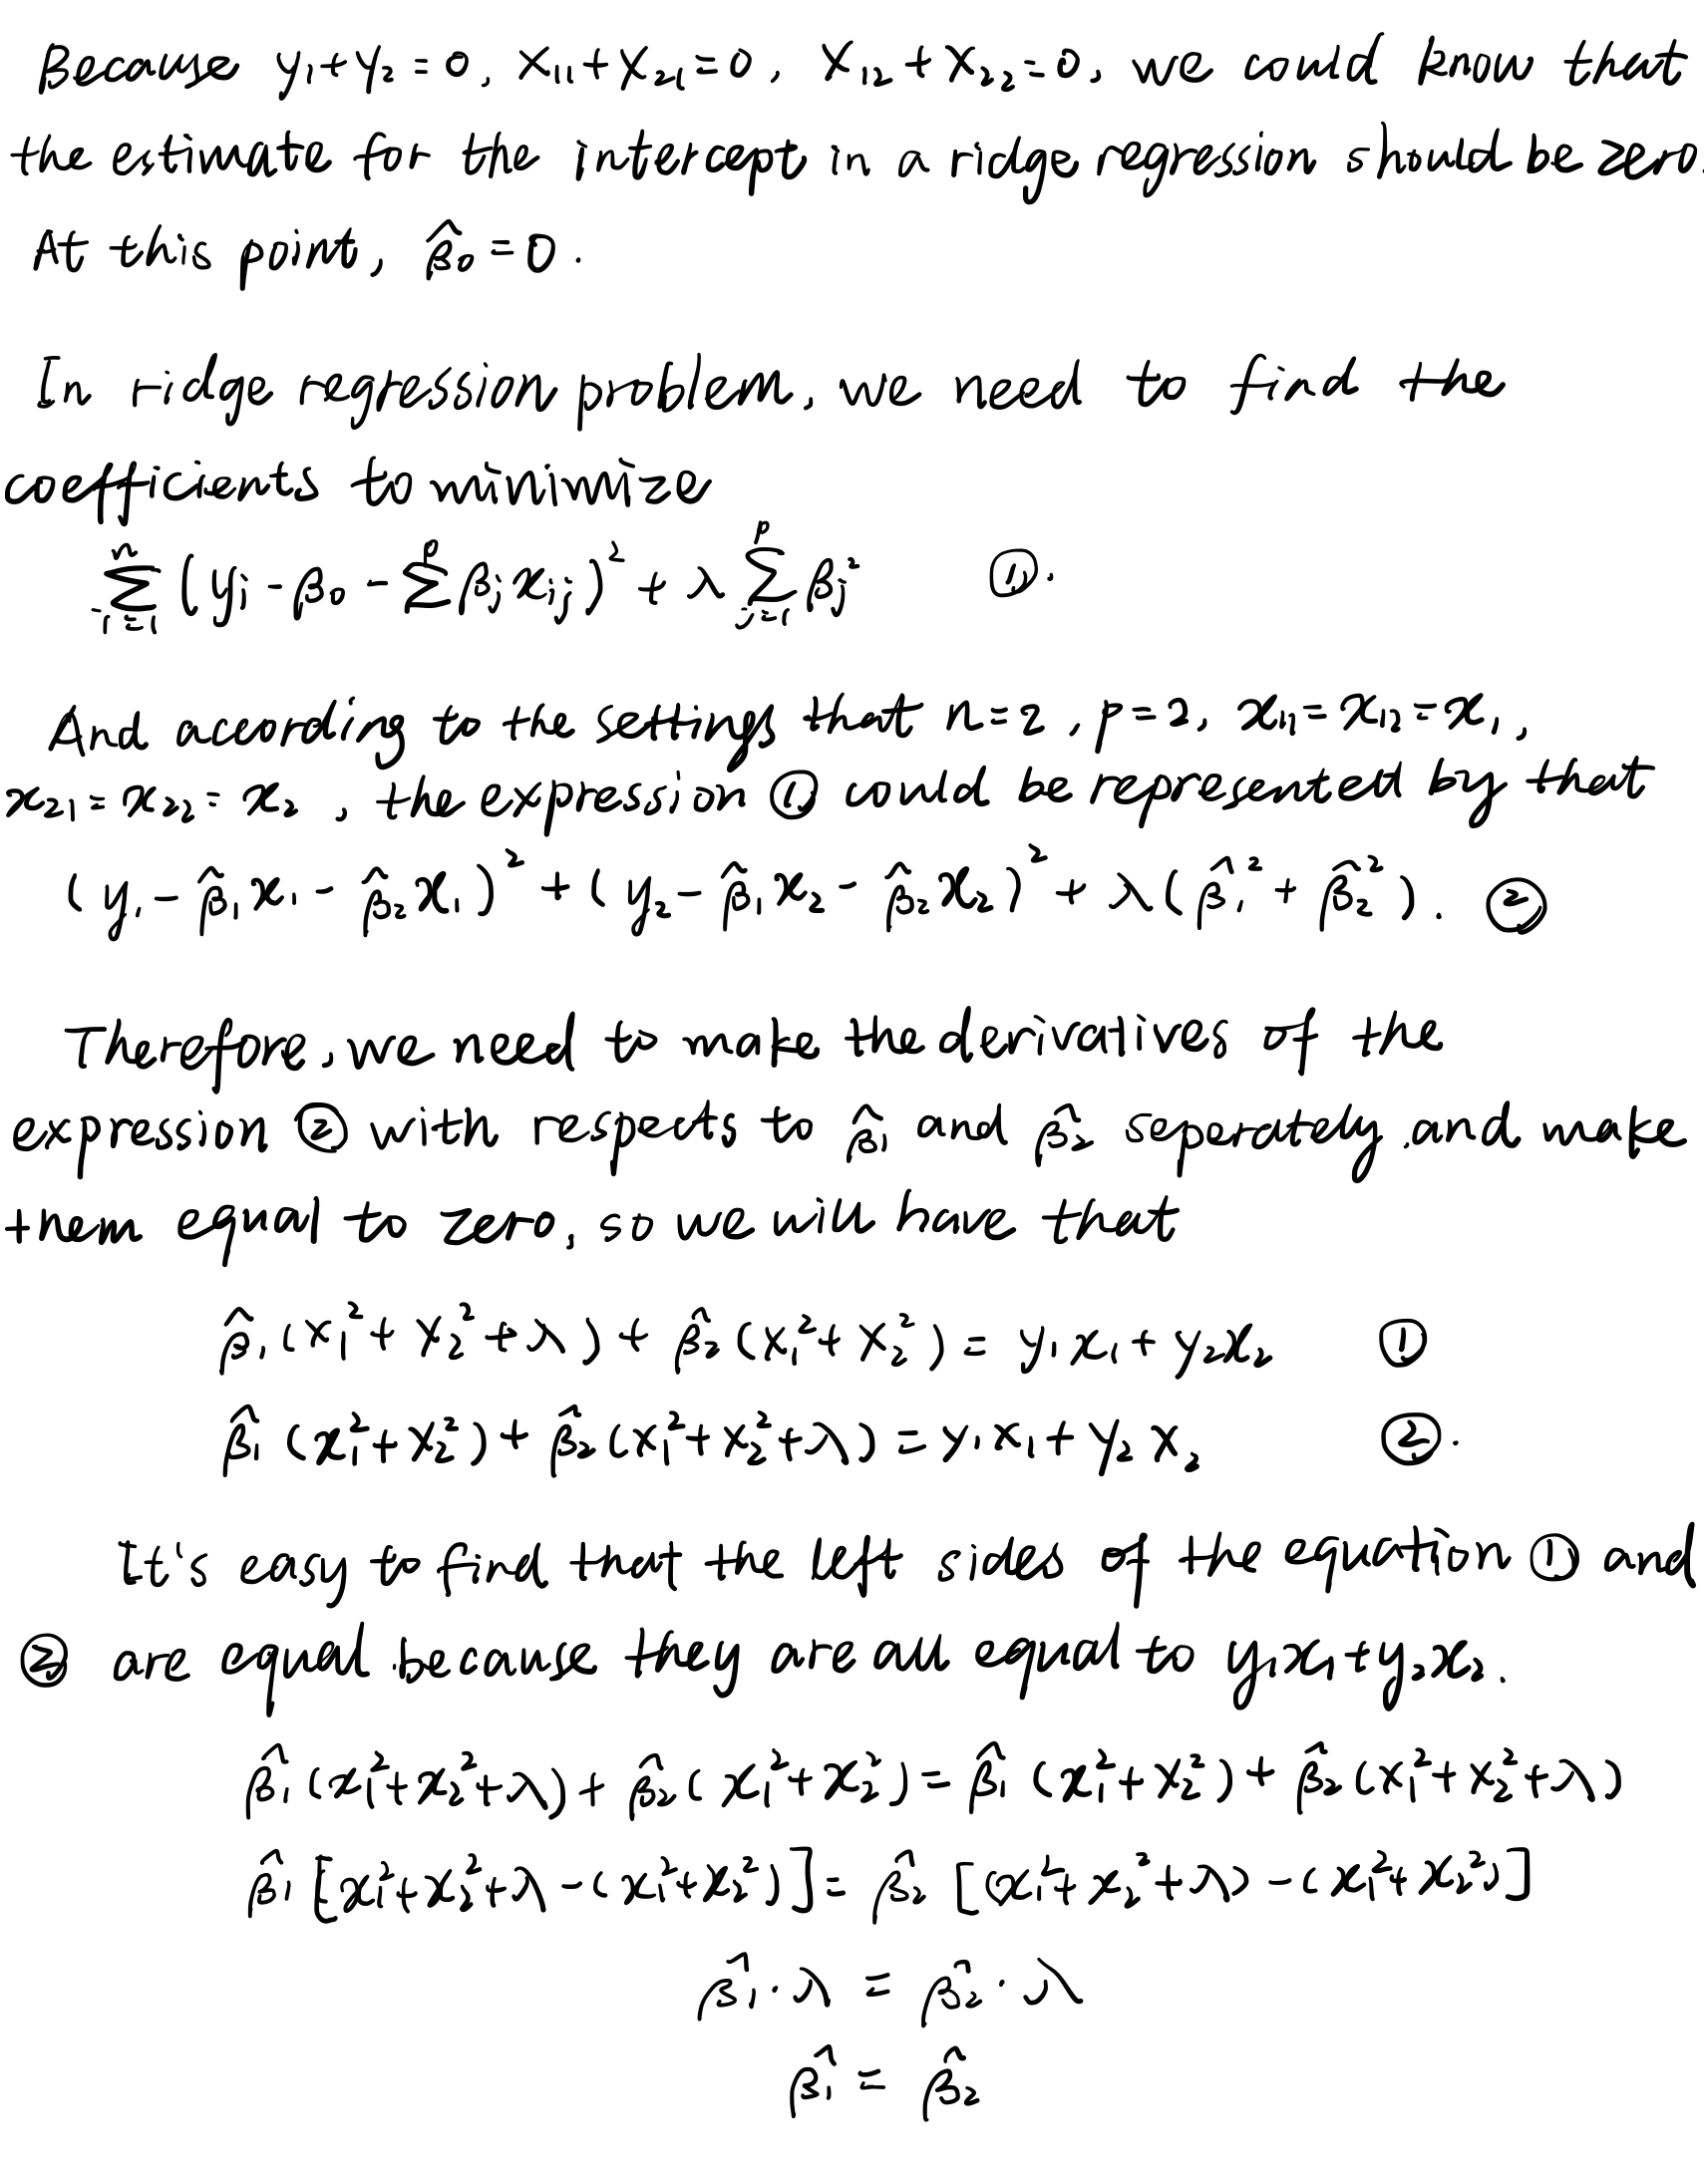 Because y₁+y₂=0, x₁₁+x₂₁=0, x₁₂+x₂₂=0, we could know that
the estimate for the intercept in a ridge regression should be zero.
At this point, β̂₀=0.
In ridge regression problem, we need to find the
coefficients to minimize
∑ⁿᵢ₌₁ (yᵢ - β₀ - ∑ᵖ βⱼxᵢⱼ)² + λ ∑ᵖⱼ₌₁ βⱼ² ①.
And according to the settings that n=2, p=2, x₁₁=x₁₂=x₁,
x₂₁=x₂₂=x₂, the expression ① could be represented by that
(y₁ - β̂₁x₁ - β̂₂x₁)² + (y₂ - β̂₁x₂ - β̂₂x₂)² + λ(β̂₁² + β̂₂²). ②
Therefore, we need to make the derivatives of the
expression ② with respects to β̂₁ and β̂₂ seperately and make
them equal to zero, so we will have that
β̂₁(x₁²+x₂²+λ) + β̂₂(x₁²+x₂²) = y₁x₁+y₂x₂ ①
β̂₁(x₁²+x₂²) + β̂₂(x₁²+x₂²+λ) = y₁x₁+y₂x₂ ②.
It's easy to find that the left sides of the equation ① and
② are equal because they are all equal to y₁x₁+y₂x₂.
β̂₁(x₁²+x₂²+λ) + β̂₂(x₁²+x₂²) = β̂₁(x₁²+x₂²) + β̂₂(x₁²+x₂²+λ)
β̂₁[x₁²+x₂²+λ-(x₁²+x₂²)] = β̂₂[(x₁²+x₂²+λ)-(x₁²+x₂²)]
β̂₁·λ = β̂₂·λ
β̂₁ = β̂₂